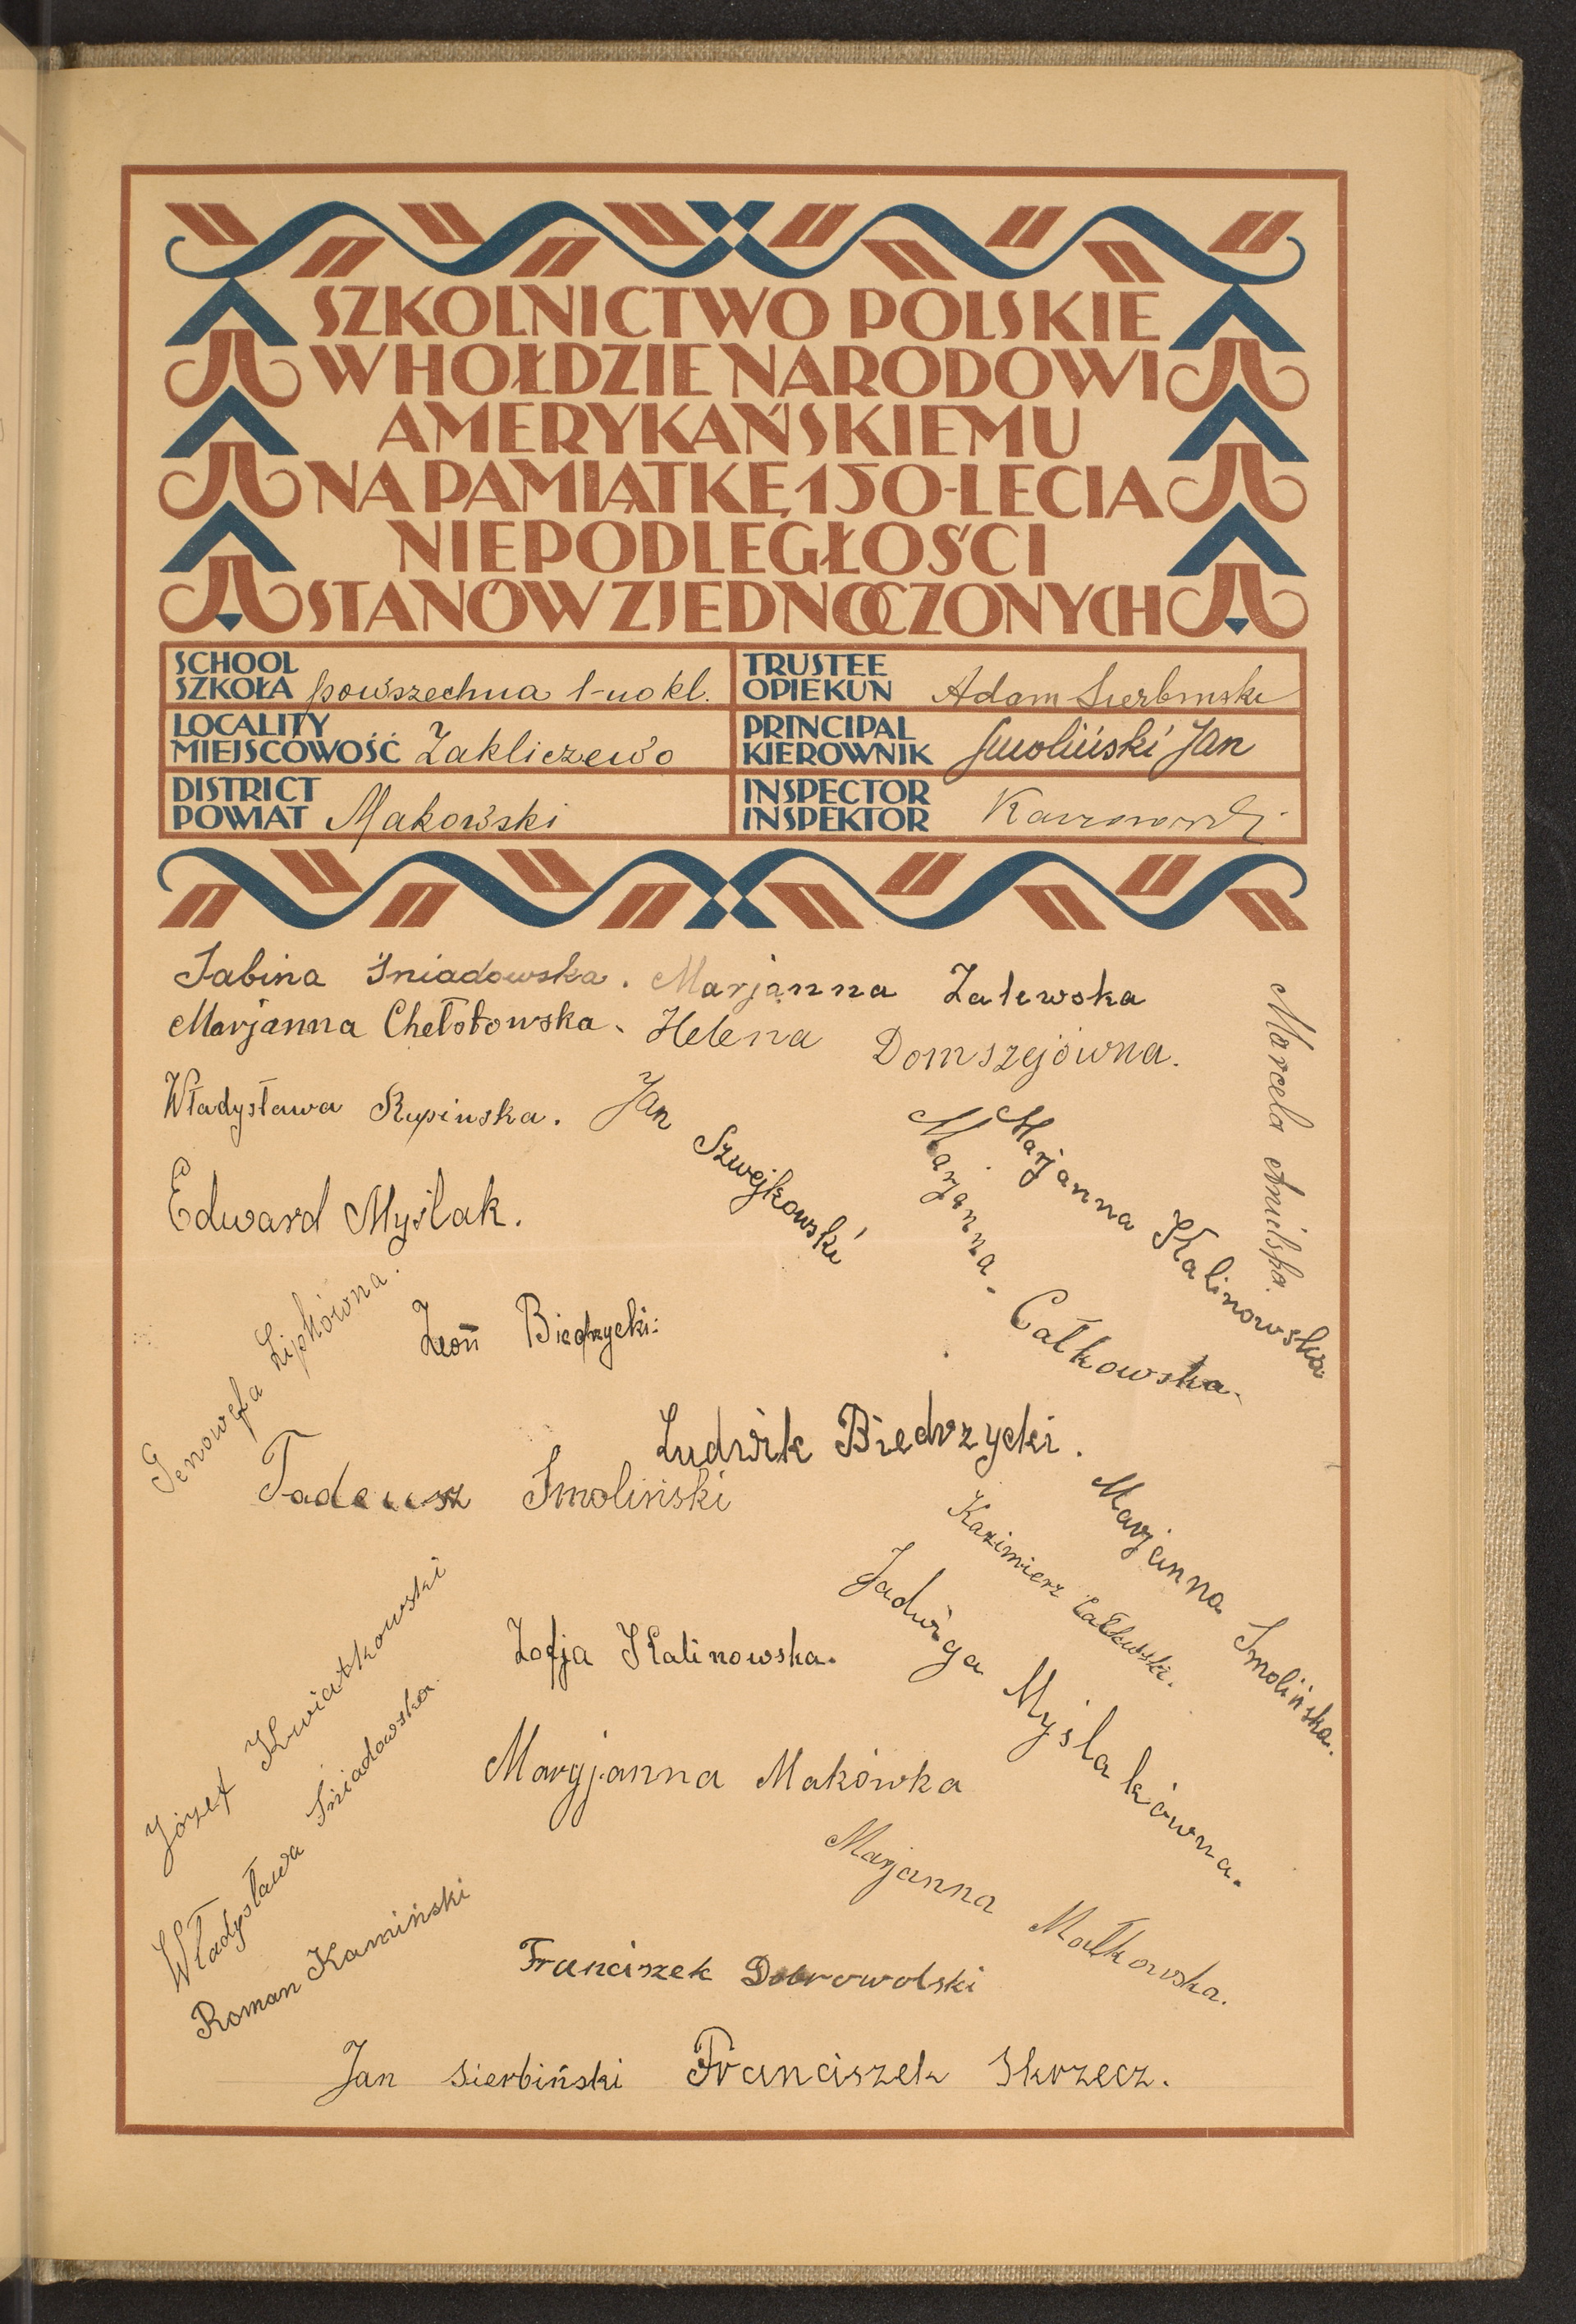 SZKOLNICTWO POLSKIE
W HOŁDZIE NARODOWI
AMERYKAŃSKIEMU
NA PAMIĄTKĘ 150-LECIA
NIEPODLEGŁOŚCI
STANÓW ZJEDNOCZONYCH
SCHOOL
SZKOŁA powszechna 1-no kl.
TRUSTEE
OPIEKUN Adam Sierbinski
LOCALITY
MIEJSCOWOŚĆ Zakliczewo
PRINCIPAL
KIEROWNIK Smoliński Jan
DISTRICT
POWIAT Makowski
INSPECTOR
INSPEKTOR
Sabina Śniadowska. Marjanna Zalewska
Marjanna Chełstowska. Helena Domszejówna.
Marcela
Władysława Rupinska. Jan Szwejkowski
Marjanna Kalinowska
Marjanna Całkowska.
Edward Myślak.
Genowefa Lipkówna.
Leon Biedrzycki.
Ludwik Biedrzycki.
Tadeusz Smoliński
Marjanna Smolińska.
Kazimierz Całkowski.
Jadwiga Myślakówna.
Józef Kwiatkowski
Zofja Kalinowska.
Władysława Śniadowska.
Maryjanna Makówka
Marjanna Małkowska.
Roman Kamiński
Franciszek Dobrowolski
Jan Sierbiński Franciszek Skrzecz.